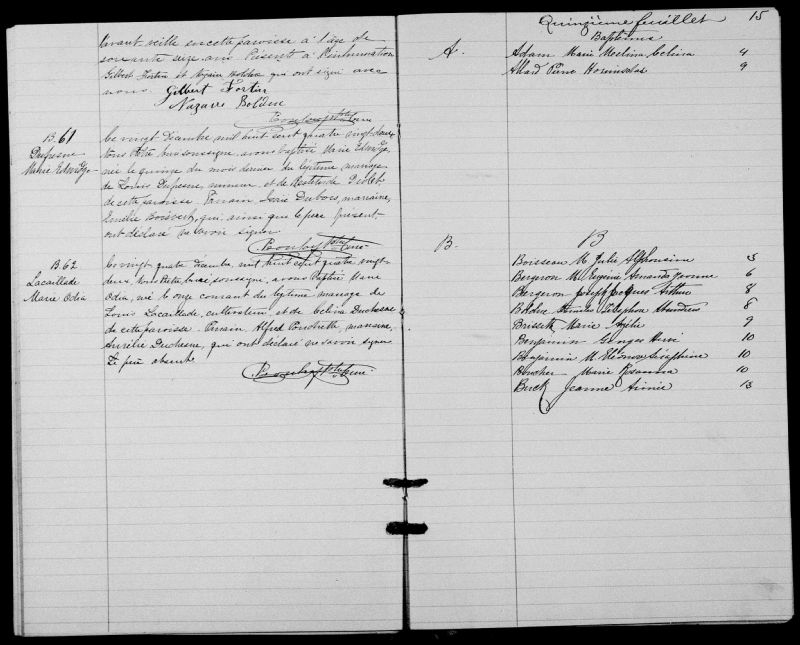 avant veille en cette paroisse à l'âge de
soixante seize ans Présents à l'inhumation
Gilbert Fortier et Nazaire Bolduc qui ont signé avec
nous.
Gilbert Fortier
Nazaire Bolduc
B.61
Dufresne
Marie Edwidge
Le vingt Décembre mil huit cent quatre vingt deux
nous Ptre soussigné, avons baptisé Marie Edwidge
née le quinze du mois dernier du légitime mariage
de Louis Dufresne, mineur et de Restitude
de cette paroisse. Parrain Dubois, marraine,
Emélie Boisvert, qui, ainsi que le père présent,
ont déclaré ne savoir signer
B.62
Lacaillade
Marie Odia
Le vingt quatre Décembre, mil huit cent quatre vingt
deux, nous Ptre soussigné, avons baptisé Marie
Odia, né le onze courant du légitime mariage de
Louis Lacaillade, cultivateur, et de Celina Duchesne
de cette paroisse. Parrain Alfred, marraine,
Aurélie Duchesne, qui ont déclaré ne savoir signer
Le père absent
Quinzième feuillet 15
Baptêmes
A.
Adam Marie Celina 4
Allard Pierre Hormisdas 9
B. B
Boisseau M. Julie Alphonsine 3
Bergeron M. Eugénie Amanda Yvonne 6
Bergeron Joseph Jacques Arthur 8
Bolduc Télesphore 8
Brissette Marie 9
Benjamin Georges Hervé 10
Benjamin M. Joséphine 10
Boucher Marie Rosanna 10
Beck Jeanne Aimée 13